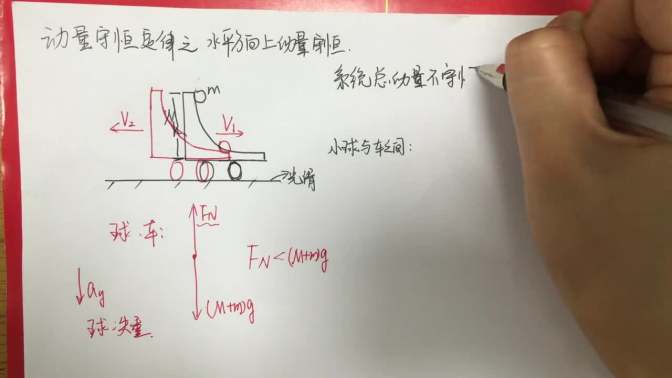 动量守恒定律之 水平方向上动量守恒.
系统总动量不守恒
m
V₂
V₁
小球与车之间:
光滑
球.车:
F_N
F_N<(M+m)g
a_y
(M+m)g
球:失重.